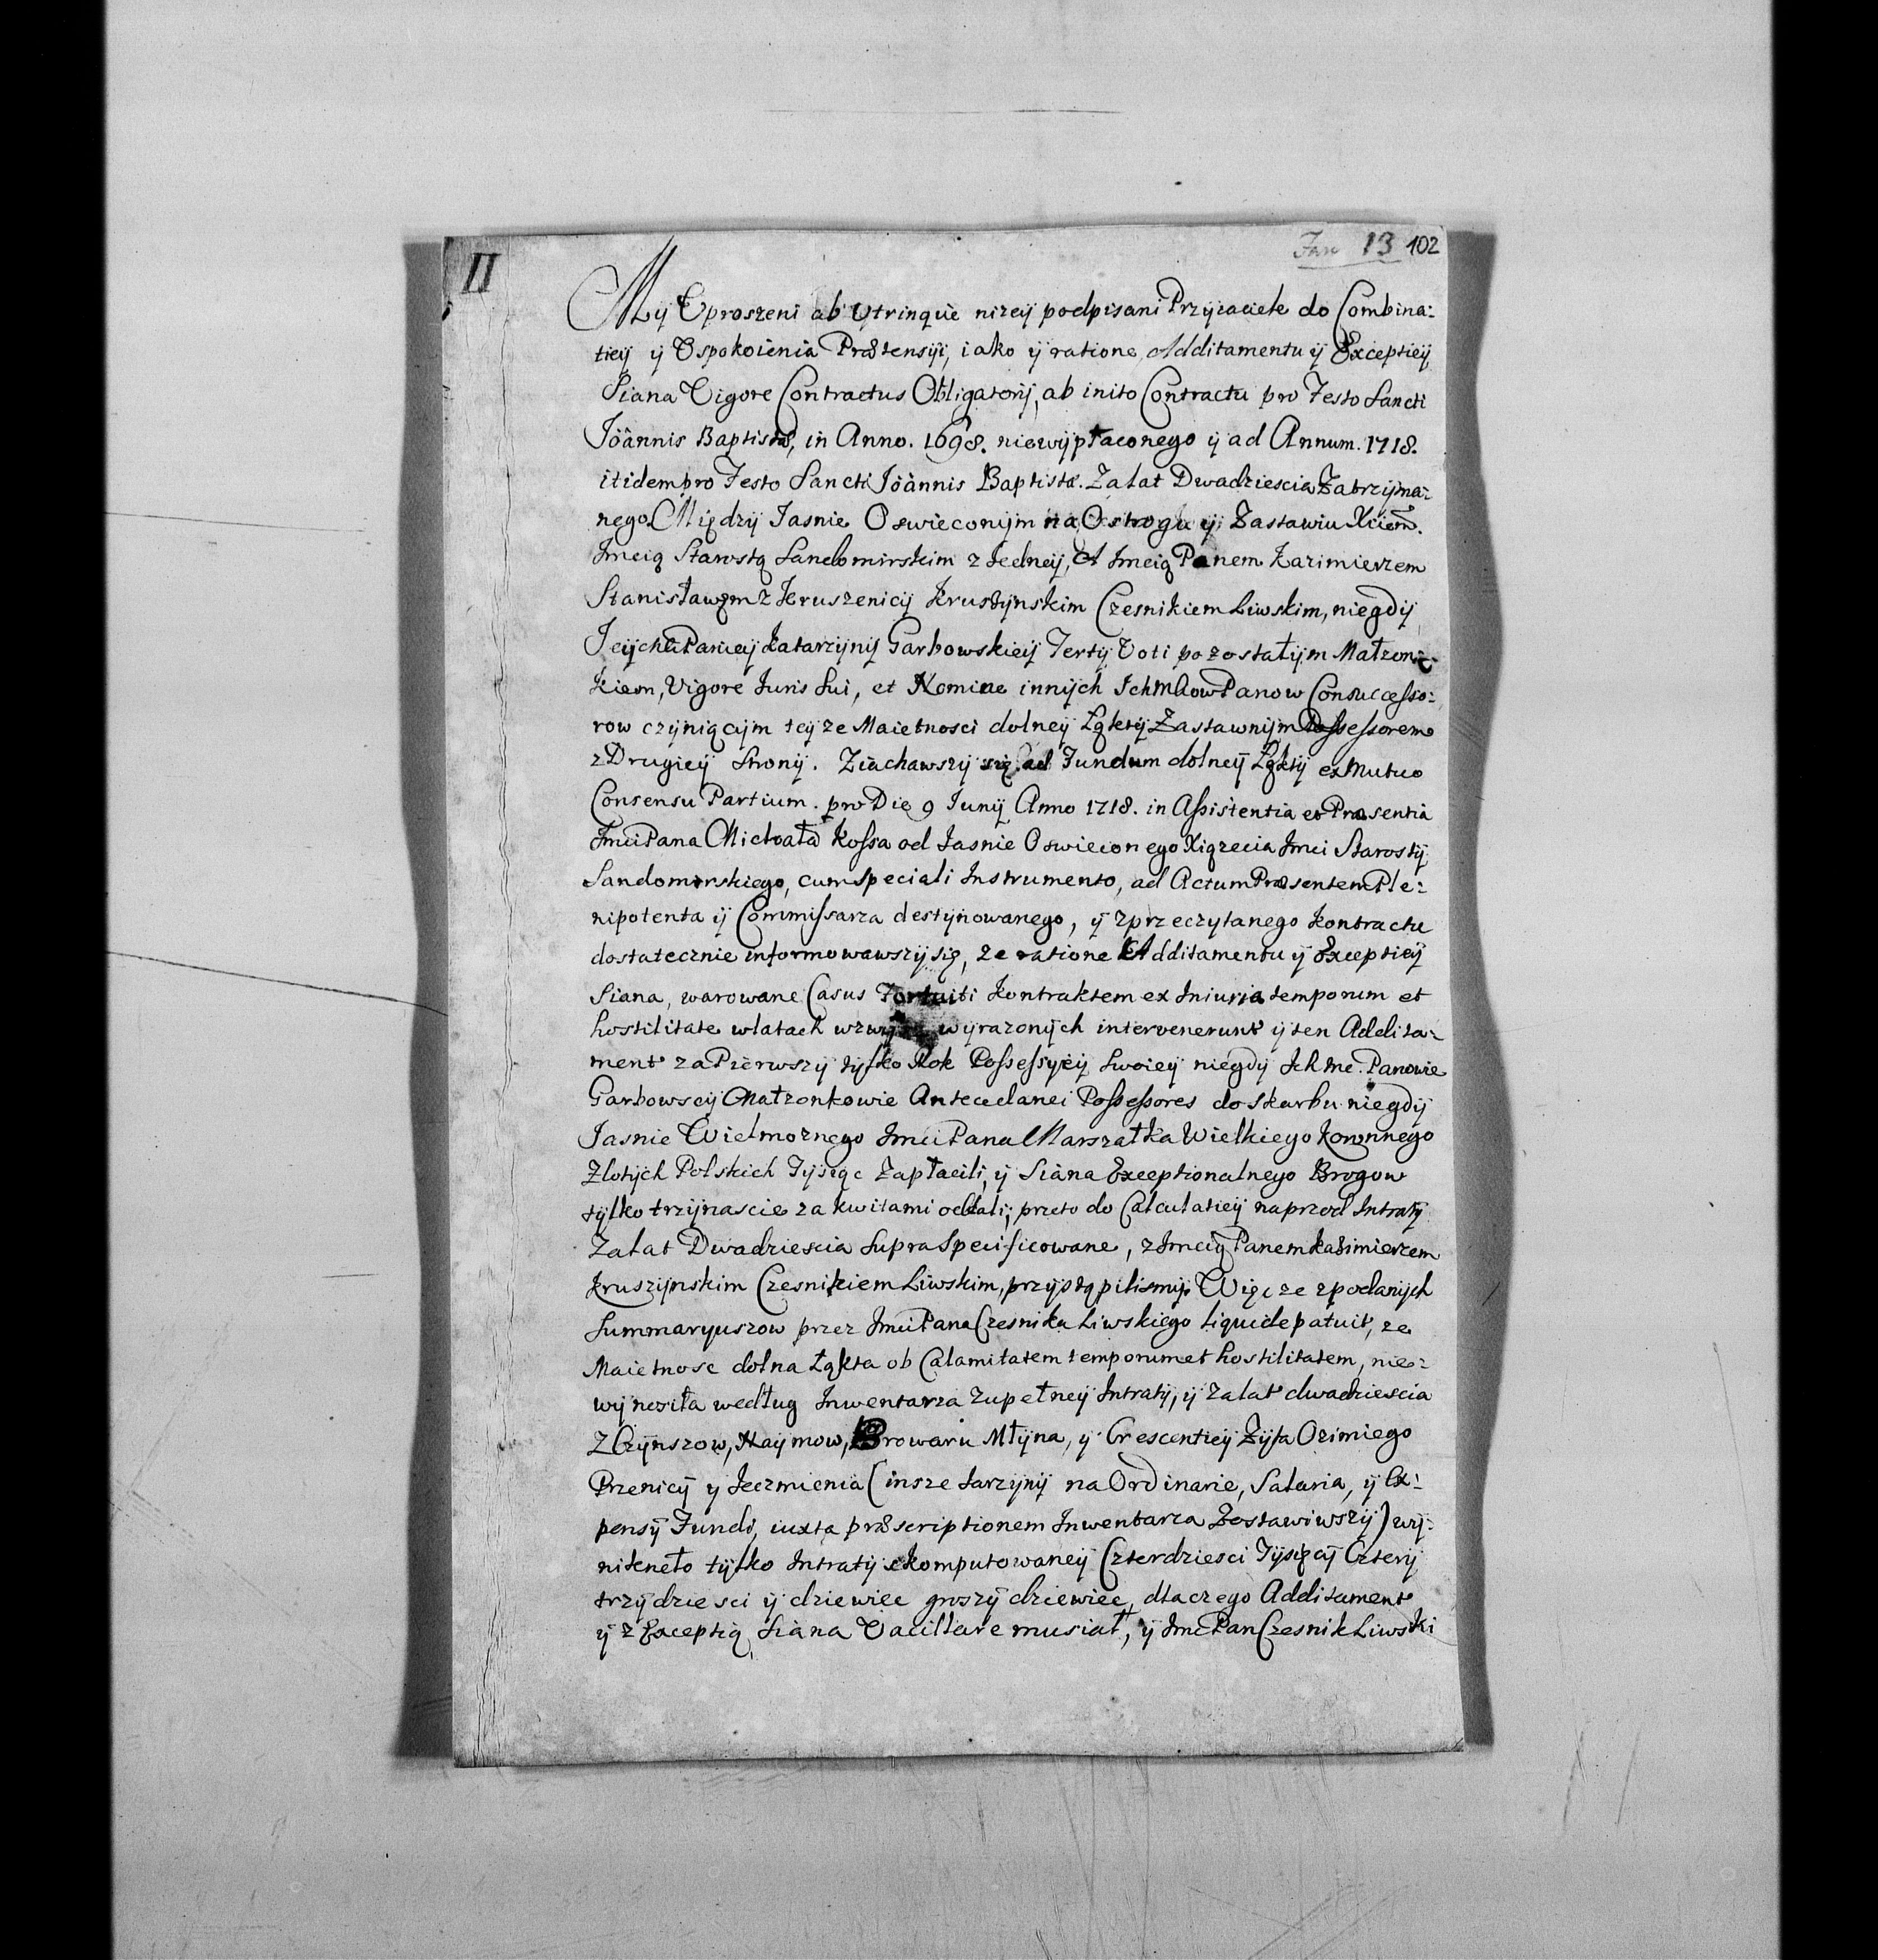 II
Jan 13 102
My Uproszeni ab utrinque niżeij podpisani Przyiaciele do Combina:
tieij ij Uspokoienia Prætensÿi, iako ij ratione Additamentu ij Exceptieij
Siana Vigore Contractus Obligatorij, ab inito Contractu pro Festo Sancti
Joânnis Baptistæ, in Anno. 1698. niewypłaconego ij ad Annum. 1718.
itidem pro Festo Sancti Joânnis Baptistæ. Zalat Dwadziescia Zatrzijma:
nego. Międzij Jasnie Oswieconijm na Ostrogu ij Zasławiu Xciem.
Jmcią Starostą Sandomirskim z Jedneij, A Jmcią Panem Kazimierzem
Stanisławem z Kruszenicij Kruszijnskim Czesnikiem Liwskim, niegdij
Katarzijnij Garbowskieij Tertij Voti pozostałijm Małzon:
kiem, Vigore Juris Sui, et Nomine innijch Ichmciow Panow Consuccesso:
row czijniącijm teijze Maietnosci dolneij Łąktij Zastawnijm Possessorem
z Drugieij Stronij. Ziachawszij się ad Fundum dolneij Łąktij ex Mutuo
Consensu Partium. pro Die 9 Junij Anno 1718. in Assistentia et Præsentia
Jmci Pana Michała Kossa od Jasnie Oswieconego Xiązecia Jmci Starostij
Sandomirskiego, cum speciali Instrumento, ad Actum Præsentem Ple:
nipotenta ij Commissarza destijnowanego, ij z przeczytanego Kontractu
dostatecznie informowawszij się, ze ratione Additamentu ij Exceptieij
Siana, warowane Casus Fortuiti Kontraktem ex Iniuria temporum et
hostilitate wlatach wyrazonijch intervenerunt ij ten Addita:
ment za Pierwszij tijlko Rok Possessijeij Swoieij niegdij Ich Mc. Panowie
Garbowscij Małzonkowie Antecedanei Possessores do skarbu niegdij
Jasnie Wielmoznego Jmci Pana Marszałka Wielkiego Koronnego
Zlotijch Polskich Tijsiąc Zapłacili, ij Siana Exceptionalnego Brogow
tijlko trzijnascie za kwitami oddali; przeto do Calculatieij naprzod Intratij
Zalat Dwadziescia Supra Specificowane, z Jmcią Panem Kazimierzem
Kruszijnskim Czesnikiem Liwskim, przijstąpilismij. Więc ze zpodanijch
Summaryuszow przez Jmci Pana Czesnika Liwskiego liquide patuit, ze
Maietnosc dolna Łąkta ob Calamitatem temporum et hostilitatem, nie:
wijnosiła według Inwentarza zupełneij Intratij, ij zalat dwadziescia
z Czijnszow, Naijmow, Browaru Młijna, ij Crescentieij Zijta Ozimiego
Przenicij ij Jeczmienia (insze Jarzijnij na Ordinarie, Salaria, ij Ex:
pensij Fundi, iuxta præscriptionem Inwentarza Zostawiwszij) wij:
nikneło tijlko Intratij skomputowaneij Czterdziesci Tijsięcij Czterij
trzijdziesci ij dziewiec groszij dziewiec, dlaczego Additament
ij z Exceptią Siana Vacillare musiał, ij Jmc Pan Czesnik Liwski